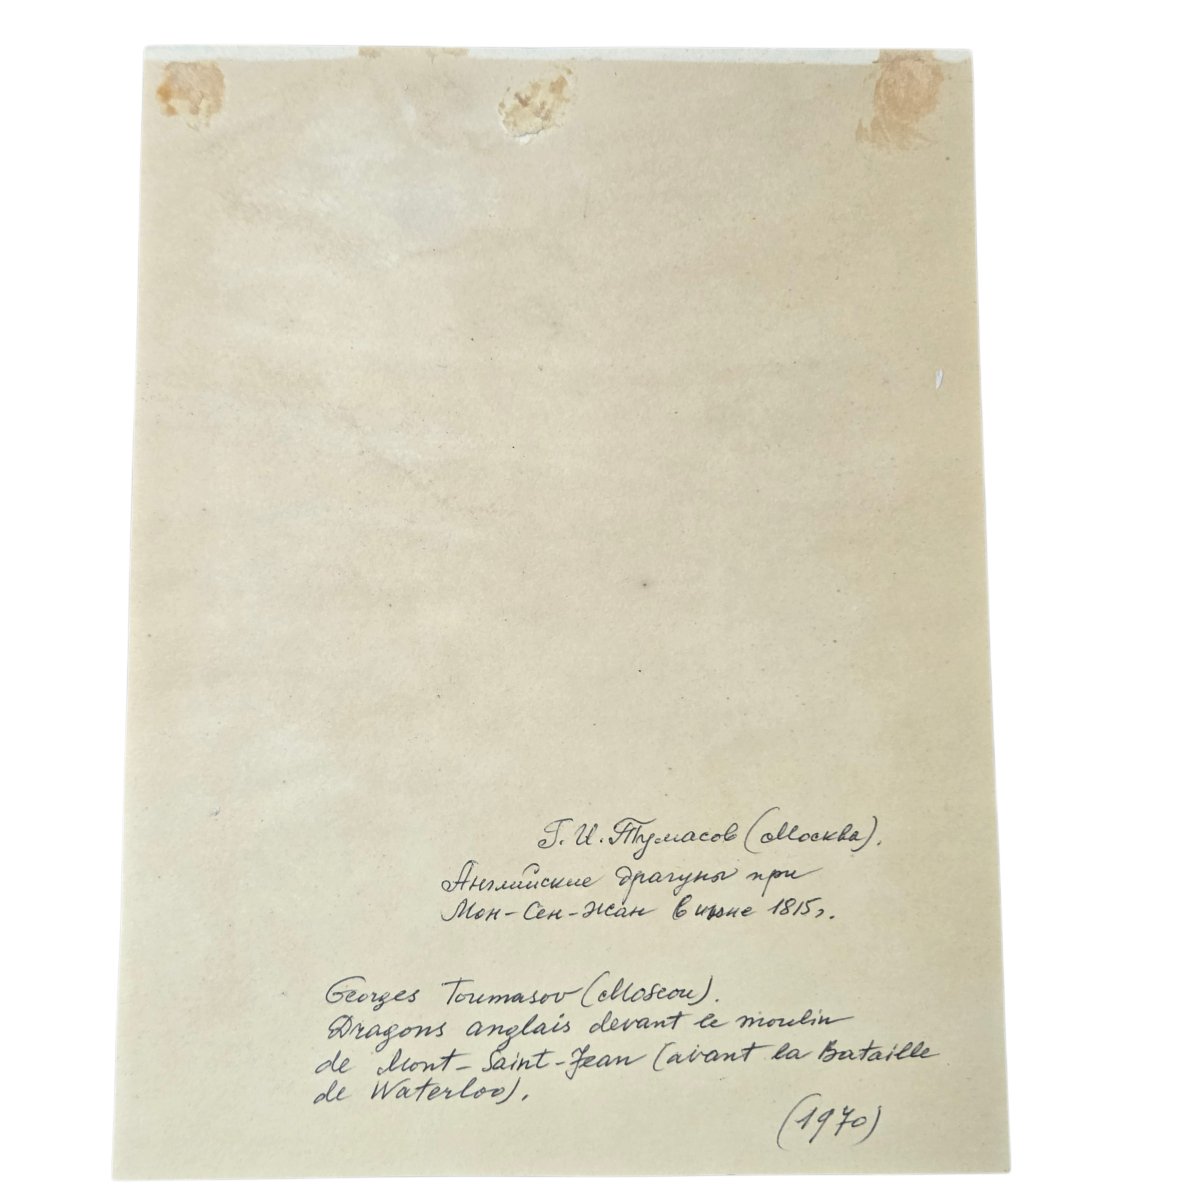 Г. И. Тумасов (Москва).
Английские драгуны при
Мон-Сен-Жан в июне 1815г.
Georges Toumasov (Moscou).
Dragons anglais devant le moulin
de Mont-Saint-Jean (avant la Bataille
de Waterloo).
(1970)